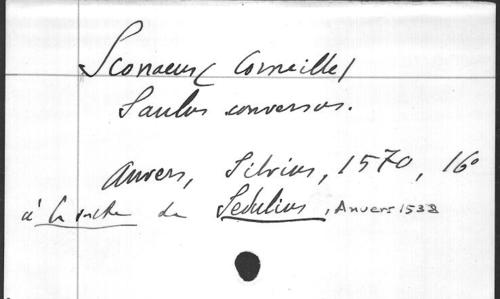 Sconaeus (Corneille)
Saulus conversus.
Anvers, Silvius, 1570, 16°
à la suite de Sedulius, Anvers 1538